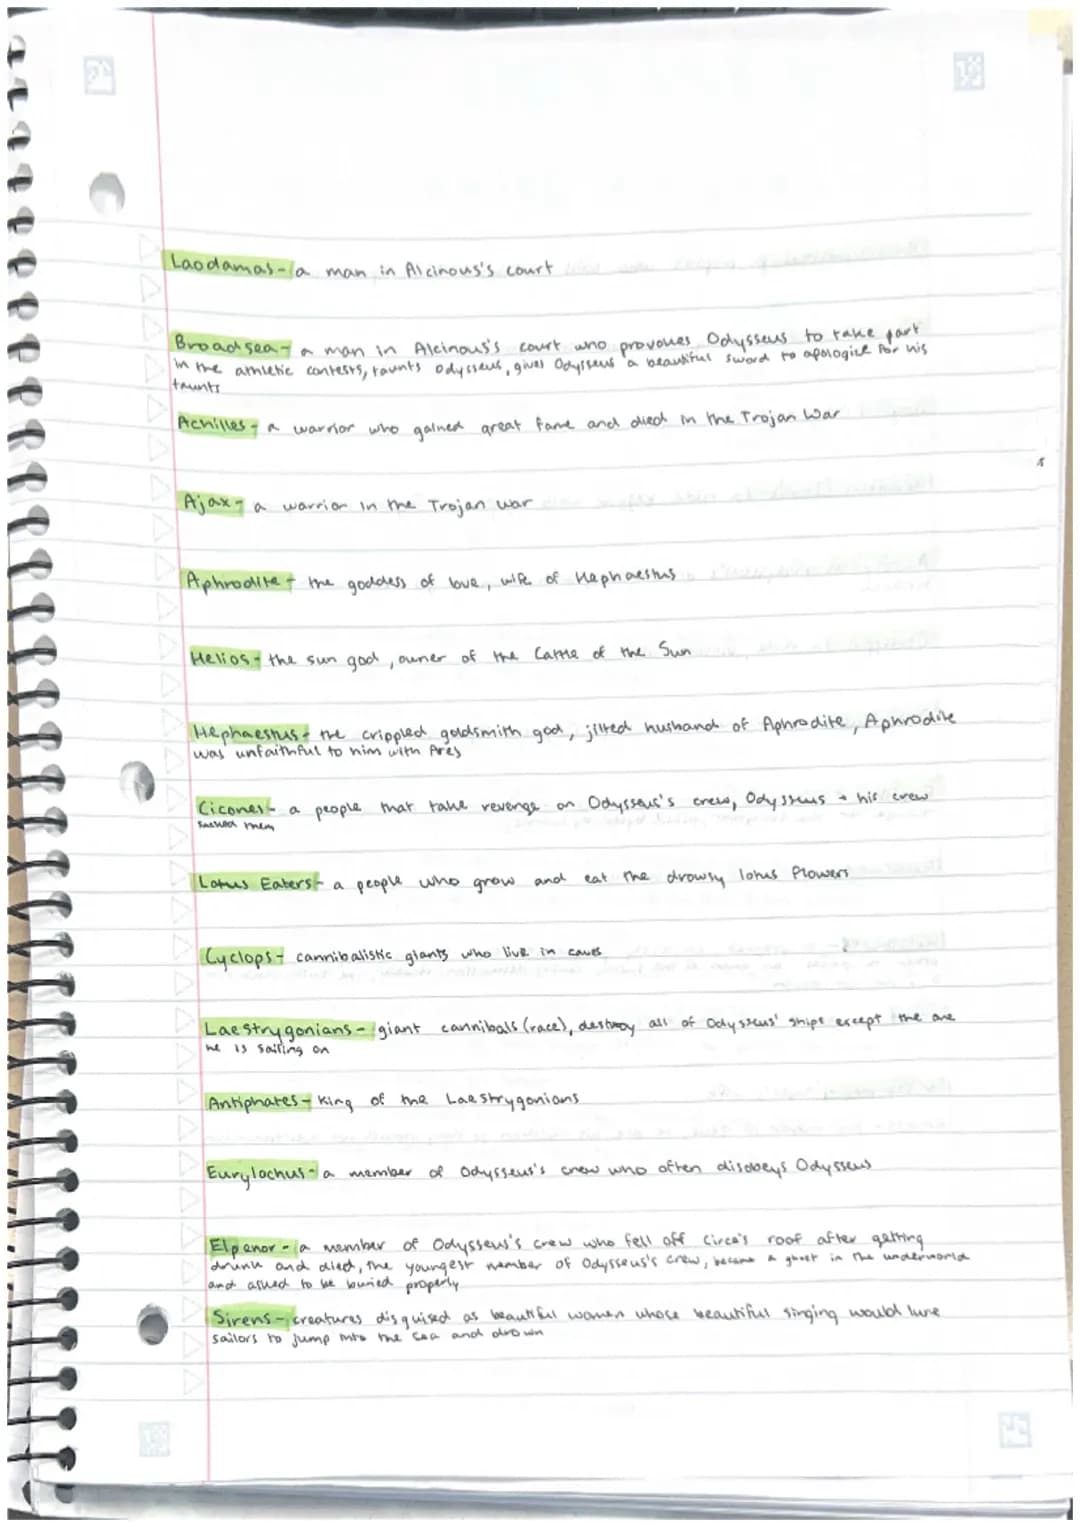 Laodamas - a man in Alcinous's court
Broadsea - a man in Alcinous's court who provokes Odysseus to take part
in the athletic contests, taunts Odysseus, gives Odysseus a beautiful sword to apologize for his
taunts
Achilles - a warrior who gained great fame and died in the Trojan War
Ajax - a warrior in the Trojan war
Aphrodite - the goddess of love, wife of Hephaestus
Helios - the sun god, owner of the Cattle of the Sun
Hephaestus - the crippled goldsmith god, jilted husband of Aphrodite, Aphrodite
was unfaithful to him with Ares
Cicones - a people that take revenge on Odysseus's crew, Odysseus + his crew
sacked them
Lotus Eaters - a people who grow and eat the drowsy lotus flowers
Cyclops - cannibalistic giants who live in caves
Laestrygonians - giant cannibals (race), destroy all of Odysseus' ships except the one
he is sailing on
Antiphates - King of the Laestrygonians
Eurylochus - a member of Odysseus's crew who often disobeys Odysseus
Elpenor - a member of Odysseus's crew who fell off Circe's roof after getting
drunk and died, the youngest member of Odysseus's crew, became a ghost in the underworld
and asked to be buried properly
Sirens - creatures disguised as beautiful women whose beautiful singing would lure
sailors to jump into the sea and drown